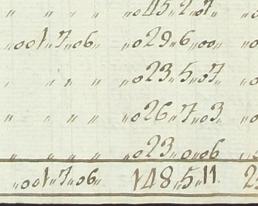 " " " " "o45"2"o7"
"oo1"7"o6" "o29"6"oo"
" " " " "o23"5"o7"
" " " " "o26"7"o3
" " " " "o23"o"o6
"oo1"7"o6" 148"5"11